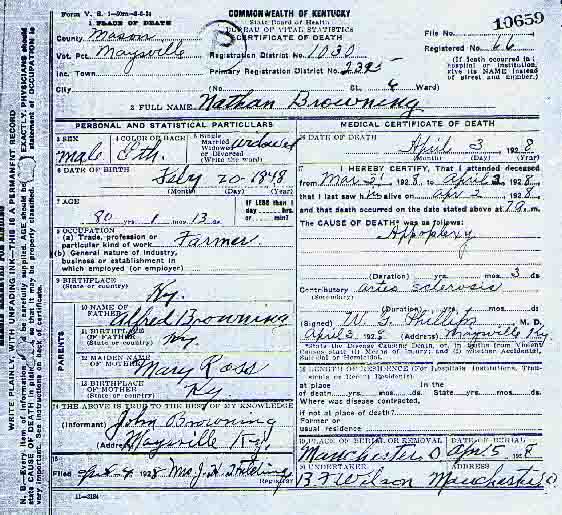 Form V. S. 1
COMMONWEALTH OF KENTUCKY
State Board of Health
BUREAU OF VITAL STATISTICS
CERTIFICATE OF DEATH
1 PLACE OF DEATH
County Mason
File No. 10659
Vot. Pct. Maysville
Registration District No. 1030
Registered No. 66
Inc. Town
Primary Registration District No. 2395
(If death occurred in a hospital or institution, give its NAME instead of street and number.)
City (No. St. 6 Ward)
2 FULL NAME Nathan Browning
PERSONAL AND STATISTICAL PARTICULARS
3 SEX male
4 COLOR OR RACE Eth.
5 Single Married Widowed or Divorced (Write the word) Widowed
6 DATE OF BIRTH Feby 20-1848
(Month) (Day) (Year)
7 AGE 80 yrs. 1 mos. 13 ds.
IF LESS than 1 day hrs. or min?
8 OCCUPATION
(a) Trade, profession or particular kind of work Farmer
(b) General nature of industry, business or establishment in which employed (or employer)
9 BIRTHPLACE (State or country) Ky.
PARENTS
10 NAME OF FATHER Alfred Browning
11 BIRTHPLACE OF FATHER (State or country) Ky
12 MAIDEN NAME OF MOTHER Mary Ross
13 BIRTHPLACE OF MOTHER (State or country) Ky
14 THE ABOVE IS TRUE TO THE BEST OF MY KNOWLEDGE
(Informant) John Browning
(Address) Maysville Ky.
15 Filed April 4 1928 Mrs J. H. Fielding
11-3184
MEDICAL CERTIFICATE OF DEATH
16 DATE OF DEATH April 3 1928
(Month) (Day) (Year)
17 I HEREBY CERTIFY, That I attended deceased
from Mar 31 1928, to April 3 1928,
that I last saw h im alive on Apr 2 1928,
and that death occurred on the date stated above at 7 a.m.
The CAUSE OF DEATH was as follows:
Appoplexy
(Duration) yrs. mos. 3 ds.
Contributory (Secondary) Arteo sclerosis
(Duration) yrs. mos. ds.
(Signed) W. S. Phillips M. D.
April 3 1928 (Address) Maysville Ky
State the Disease Causing Death, or, in deaths from Violent Causes state (1) Means of Injury; and (2) whether Accidental, Suicidal or Homicidal.
18 LENGTH OF RESIDENCE (For Hospitals, Institutions, Transients or Recent Residents)
at place of death yrs. mos. ds. In the State yrs. mos. ds.
Where was disease contracted,
if not at place of death?
Former or usual residence
19 PLACE OF BURIAL OR REMOVAL Manchester O
DATE OF BURIAL Apr 5 1928
20 UNDERTAKER B F Wilson
ADDRESS Manchester O
WRITE PLAINLY WITH UNFADING INK—THIS IS A PERMANENT RECORD
N. B.—Every item of information should be carefully supplied. AGE should be stated EXACTLY. PHYSICIANS should state CAUSE OF DEATH in plain terms, so that it may be properly classified. Exact statement of OCCUPATION is very important. See instructions on back of certificate.